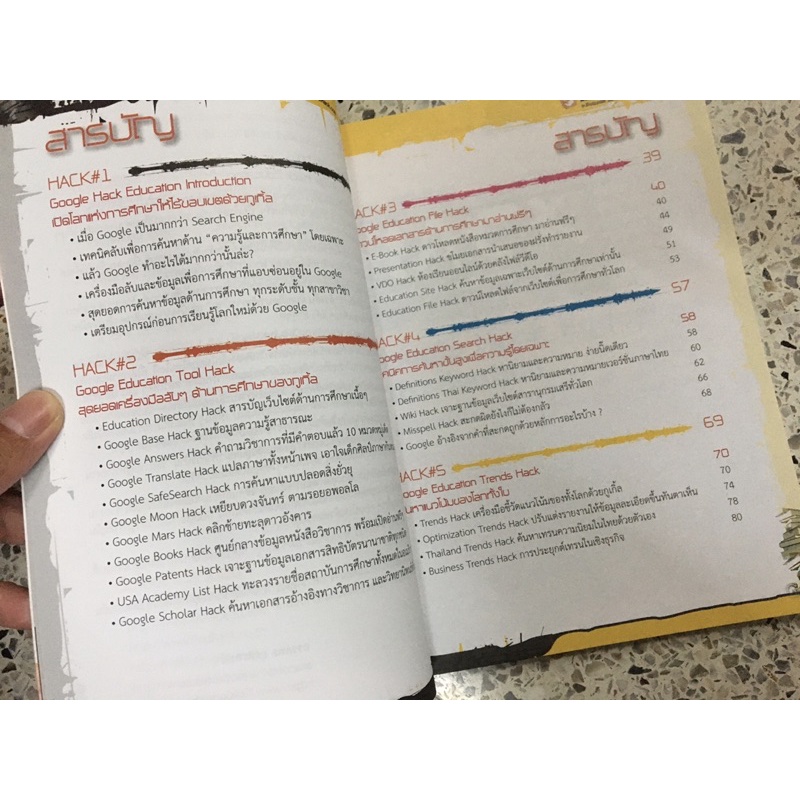 สารบัญ
HACK#1
Google Hack Education Introduction
เปิดโลกแห่งการศึกษาให้ไร้ขอบเขตด้วยกูเกิ้ล
• เมื่อ Google เป็นมากกว่า Search Engine
• เทคนิคลับเพื่อการค้นหาด้าน "ความรู้และการศึกษา" โดยเฉพาะ
• แล้ว Google ทำอะไรได้มากกว่านั้นล่ะ?
• เครื่องมือลับและข้อมูลเพื่อการศึกษาที่แอบซ่อนอยู่ใน Google
• สุดยอดการค้นหาข้อมูลด้านการศึกษา ทุกระดับชั้น ทุกสาขาวิชา
• เตรียมอุปกรณ์ก่อนการเรียนรู้โลกใหม่ด้วย Google
HACK#2
Google Education Tool Hack
สุดยอดเครื่องมือลับๆ ด้านการศึกษาของกูเกิ้ล
• Education Directory Hack สารบัญเว็บไซต์ด้านการศึกษาเนื้อๆ
• Google Base Hack ฐานข้อมูลความรู้สาธารณะ
• Google Answers Hack คำถามวิชาการที่มีคำตอบแล้ว 10 หมวดหมู่
• Google Translate Hack แปลภาษาทั้งหน้าเพจ เอาใจเด็กศิลป์ภาษา
• Google SafeSearch Hack การค้นหาแบบปลอดสิ่งยั่วยุ
• Google Moon Hack เหยียบดวงจันทร์ ตามรอยอพอลโล
• Google Mars Hack คลิกซ้ายทะลุดาวอังคาร
• Google Books Hack ศูนย์กลางหนังสือวิชาการ พร้อมเปิดอ่าน
• Google Patents Hack เจาะฐานข้อมูลเอกสารสิทธิบัตรนานาชาติ
• USA Academy List Hack ทะลวงรายชื่อสถาบันการศึกษาทั้งหมดใน
• Google Scholar Hack ค้นหาเอกสารอ้างอิงทางวิชาการ และวิทยานิพนธ์
สารบัญ
HACK#3 39
Google Education File Hack 40
ดาวน์โหลดเอกสารด้านการศึกษามาอ่านฟรีๆ
• E-Book Hack ดาวโหลดหนังสือหมวดการศึกษา มาอ่านฟรีๆ 40
• Presentation Hack ขโมยเอกสารนำเสนอของฝรั่งทำรายงาน 44
• VDO Hack ห้องเรียนออนไลน์ด้วยคลังไฟล์วีดีโอ 49
• Education Site Hack ค้นหาข้อมูลเฉพาะเว็บไซต์ด้านการศึกษาเท่านั้น 51
• Education File Hack ดาวน์โหลดไฟล์จากเว็บไซต์เพื่อการศึกษาทั่วโลก 53
HACK#4 57
Google Education Search Hack 58
เทคนิคการค้นหาขั้นสูงเพื่อความรู้โดยเฉพาะ
• Definitions Keyword Hack หานิยามและความหมาย ง่ายปี๊ดเดียว 58
• Definitions Thai Keyword Hack หานิยามและความหมายเวอร์ชันภาษาไทย 60
• Wiki Hack เจาะฐานข้อมูลเว็บไซต์สารานุกรมเสรีทั่วโลก 62
• Misspell Hack สะกดผิดยังไงก็ไม่ต้องกลัว 66
• Google อ้างอิงจากคำที่สะกดถูกด้วยหลักการอะไรบ้าง ? 68
HACK#5 69
Google Education Trends Hack 70
ค้นหาแนวโน้มของโลกทั้งใบ
• Trends Hack เครื่องมือชี้วัดแนวโน้มของทั้งโลกด้วยกูเกิ้ล 70
• Optimization Trends Hack ปรับแต่งรายงานให้ข้อมูลละเอียดขึ้นทันตาเห็น 74
• Thailand Trends Hack ค้นหาเทรนความนิยมในไทยด้วยตัวเอง 78
• Business Trends Hack การประยุกต์เทรนในเชิงธุรกิจ 80